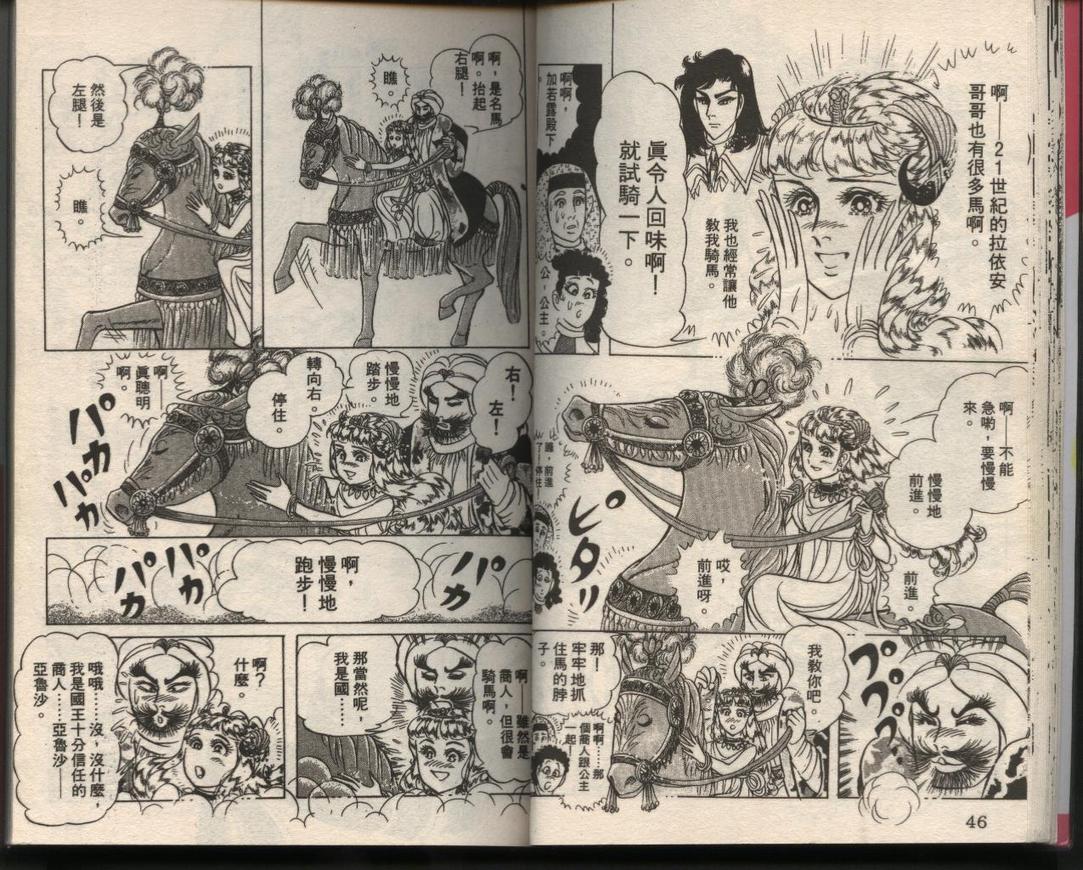 啊——21世紀的拉依安
哥哥也有很多馬啊。
我也經常讓他
教我騎馬。
眞令人回味啊！
就試騎一下。
啊啊，
加若露殿下
。
公，公主。
啊——不能
急喲，要慢慢
來。
慢慢地
前進。
前進。
哎，
前進呀。
ピタリ
，前進
了，停住！
ププププ
我教你吧。
那！
牢牢地抓
住馬的脖
子。
啊啊……那
個商人跟公主
一起！
46
啊，是名馬
啊。抬起
右腿！
瞧。
然後是
左腿！
瞧。
右！
左！
慢慢地
踏步。
轉向右。
停住。
啊——
眞聰明
啊。
パカ
パカ
パカ
啊，
慢慢地
跑步！
パカ
パカ
啊，雖然是
商人，但很會
騎馬啊。
那當然呢，
我是國……
啊？
什麼。
哦哦……沒，沒什麼，
我是國王十分信任的
商人……亞魯沙——
亞魯沙。